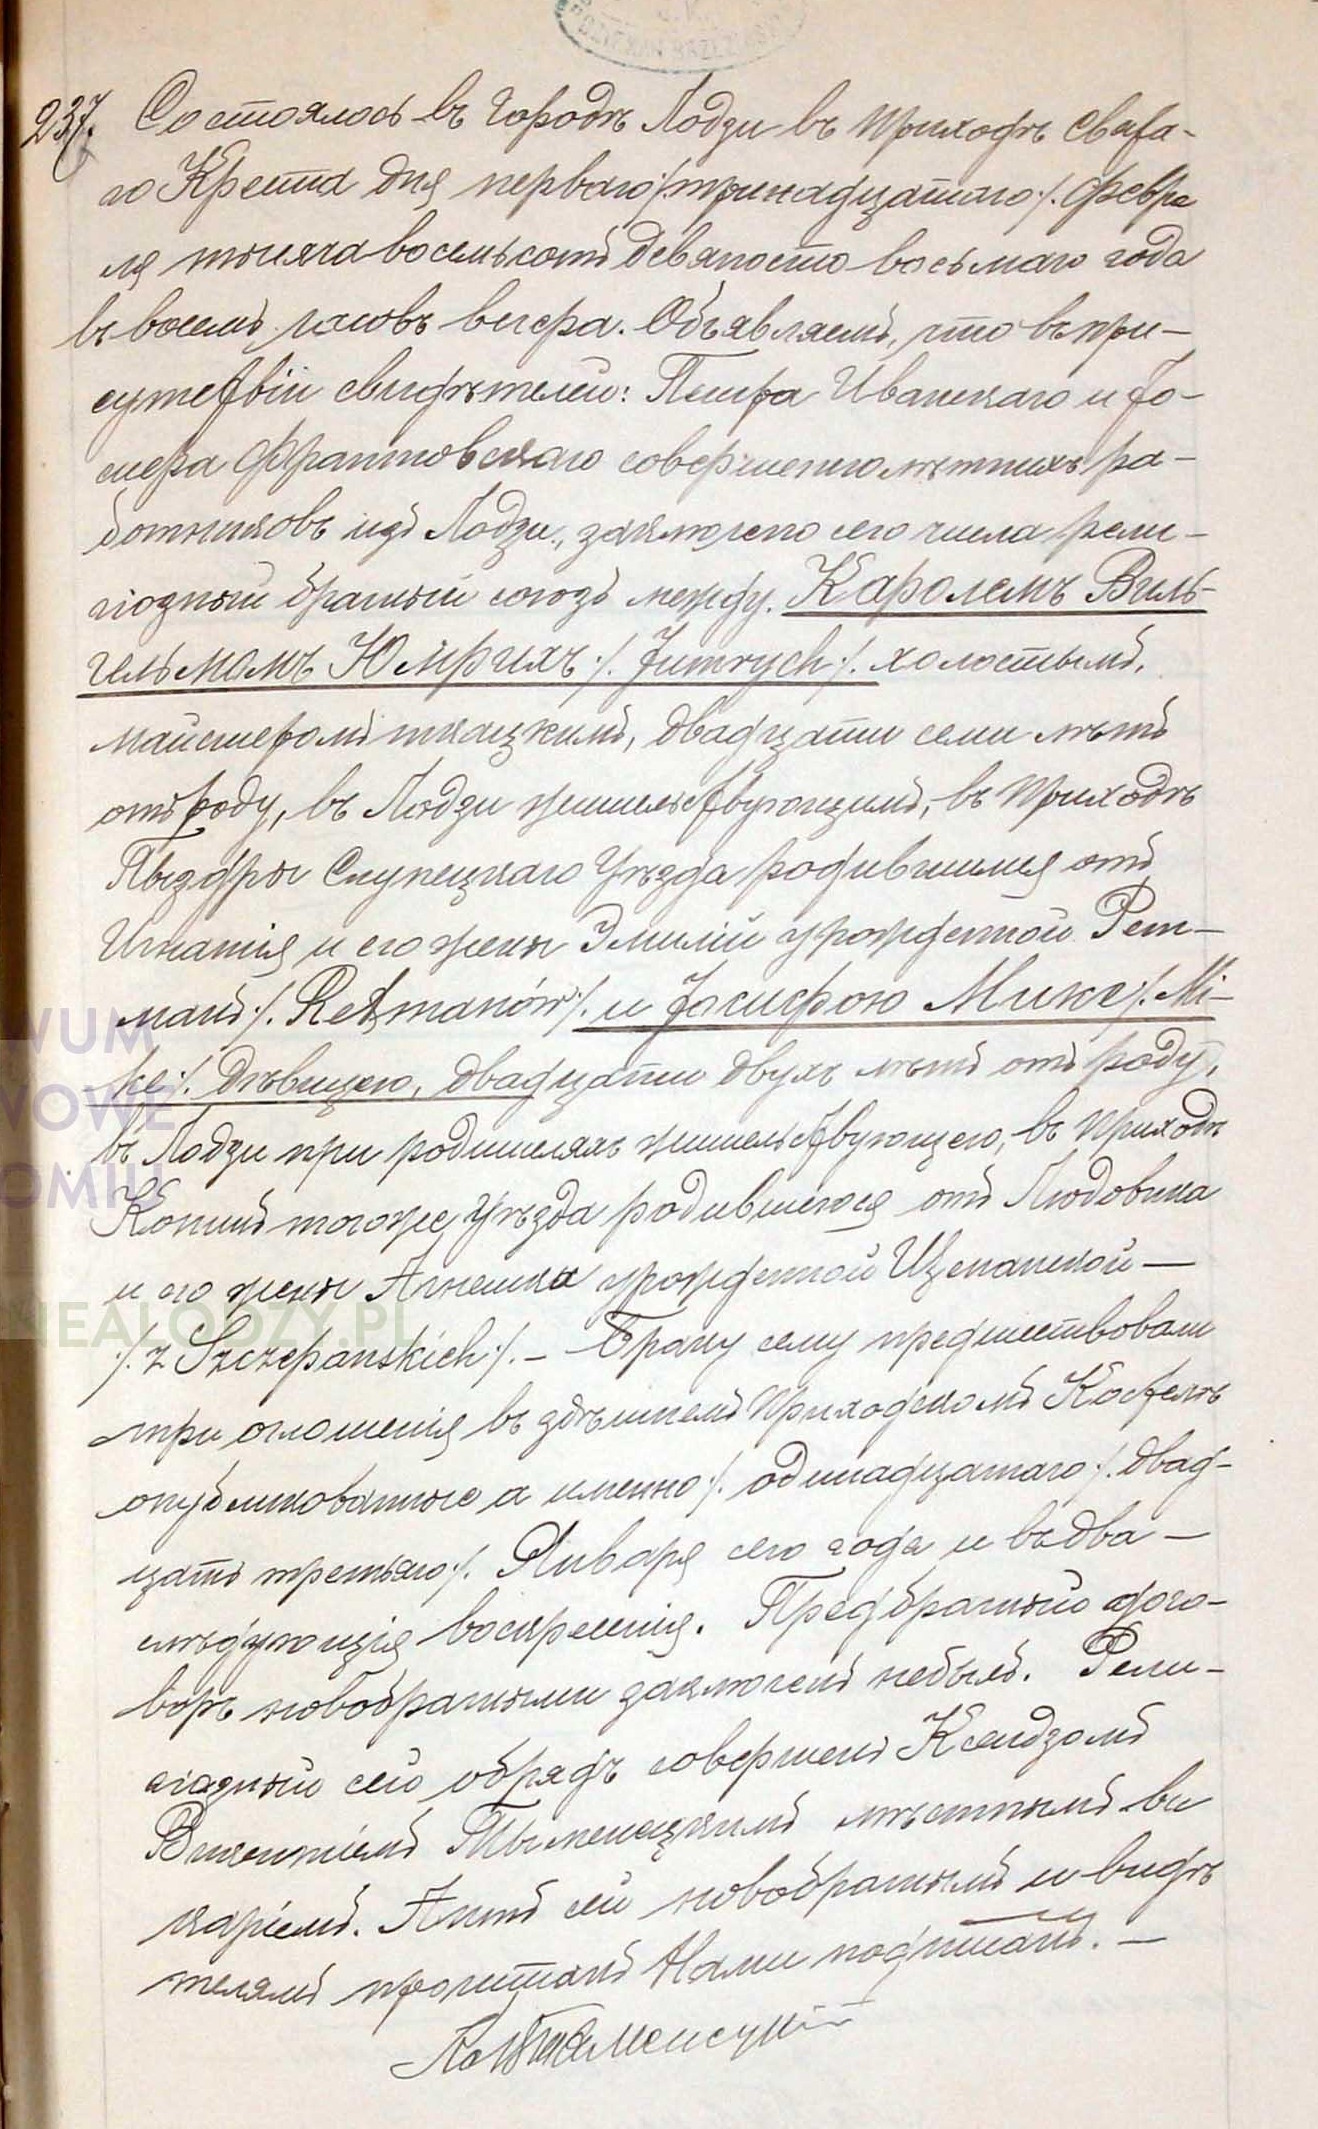 237. Состоялось въ городѣ Лодзи въ приходѣ Свята-
го Креста дня перваго /:тринадцатаго:/ Февра
ля тысяча восемьсотъ девяносто восьмаго года
въ восемь часовъ вечера. Объявляемъ, что въ при-
сутствіи свидѣтелей: Петра Иванскаго и Іо-
сифа совершеннолѣтнихъ ра-
ботниковъ изъ Лодзи, заключено сего числа рели-
гіозный брачный союзъ между Каролемъ Виль-
гельмомъ Юмрихъ /:Jumrych:/ холостымъ,
майстеромъ ткацкимъ, двадцати семи лѣтъ
отъ роду, въ Лодзи жительствующимъ, въ приходѣ
Пыздры Слупецкаго Уѣзда родившимся отъ
Игнатія и его жены Эмиліи урожденной Рет-
манъ /:Retmanów:/ и Іосифою Мике /:Mi-
ke:/ дѣвицею, двадцати двухъ лѣтъ отъ роду,
въ Лодзи при родителяхъ жительствующею, въ приходѣ
Конинъ тогоже Уѣзда родившеюся отъ Людовика
и его жены Агнешки урожденной Щепанской —
/:z Szczepańskich:/. — Браку сему предшествовали
три оглошенія въ здѣшнемъ приходскомъ Костелѣ
опубликованные а именно /:одинадцатаго:/ двад-
цать третьяго:/ Января сего года и въ два —
слѣдующія воскресенія. Предбрачный дого-
воръ новобрачными заключенъ небылъ. Рели-
гіозный сей обрядъ совершенъ Ксендзомъ
Викентіемъ Тыменецкимъ мѣстнымъ ви
каріемъ. Актъ сей новобрачнымъ и свидѣ
телямъ прочитанъ Нами подписанъ. —